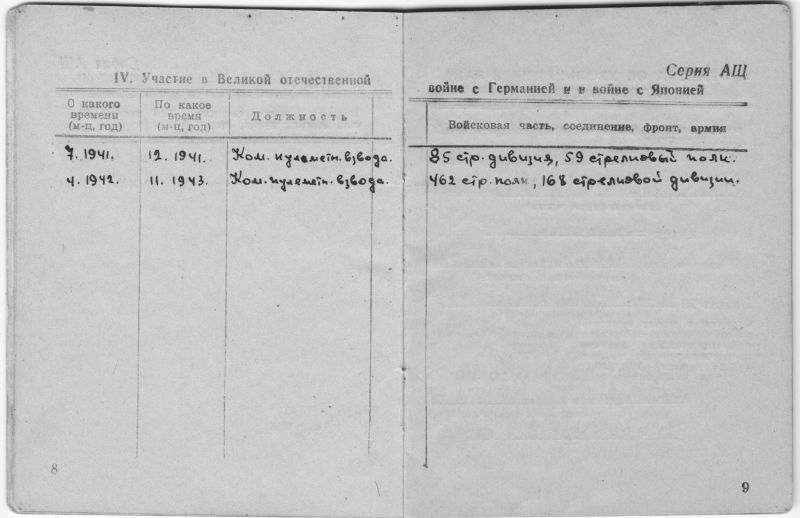 IV. Участие в Великой отечественной
С какого времени (м-ц, год)
По какое время (м-ц, год)
Должность
7. 1941. 12. 1941. Ком. пулеметн. взвода.
4. 1942. 11. 1943. Ком. пулеметн. взвода.
8
Серия АЩ
войне с Германией и в войне с Японией
Войсковая часть, соединение, фронт, армия
85 стр. дивизия, 59 стрелковый полк.
462 стр. полк, 168 стрелковой дивизии.
9